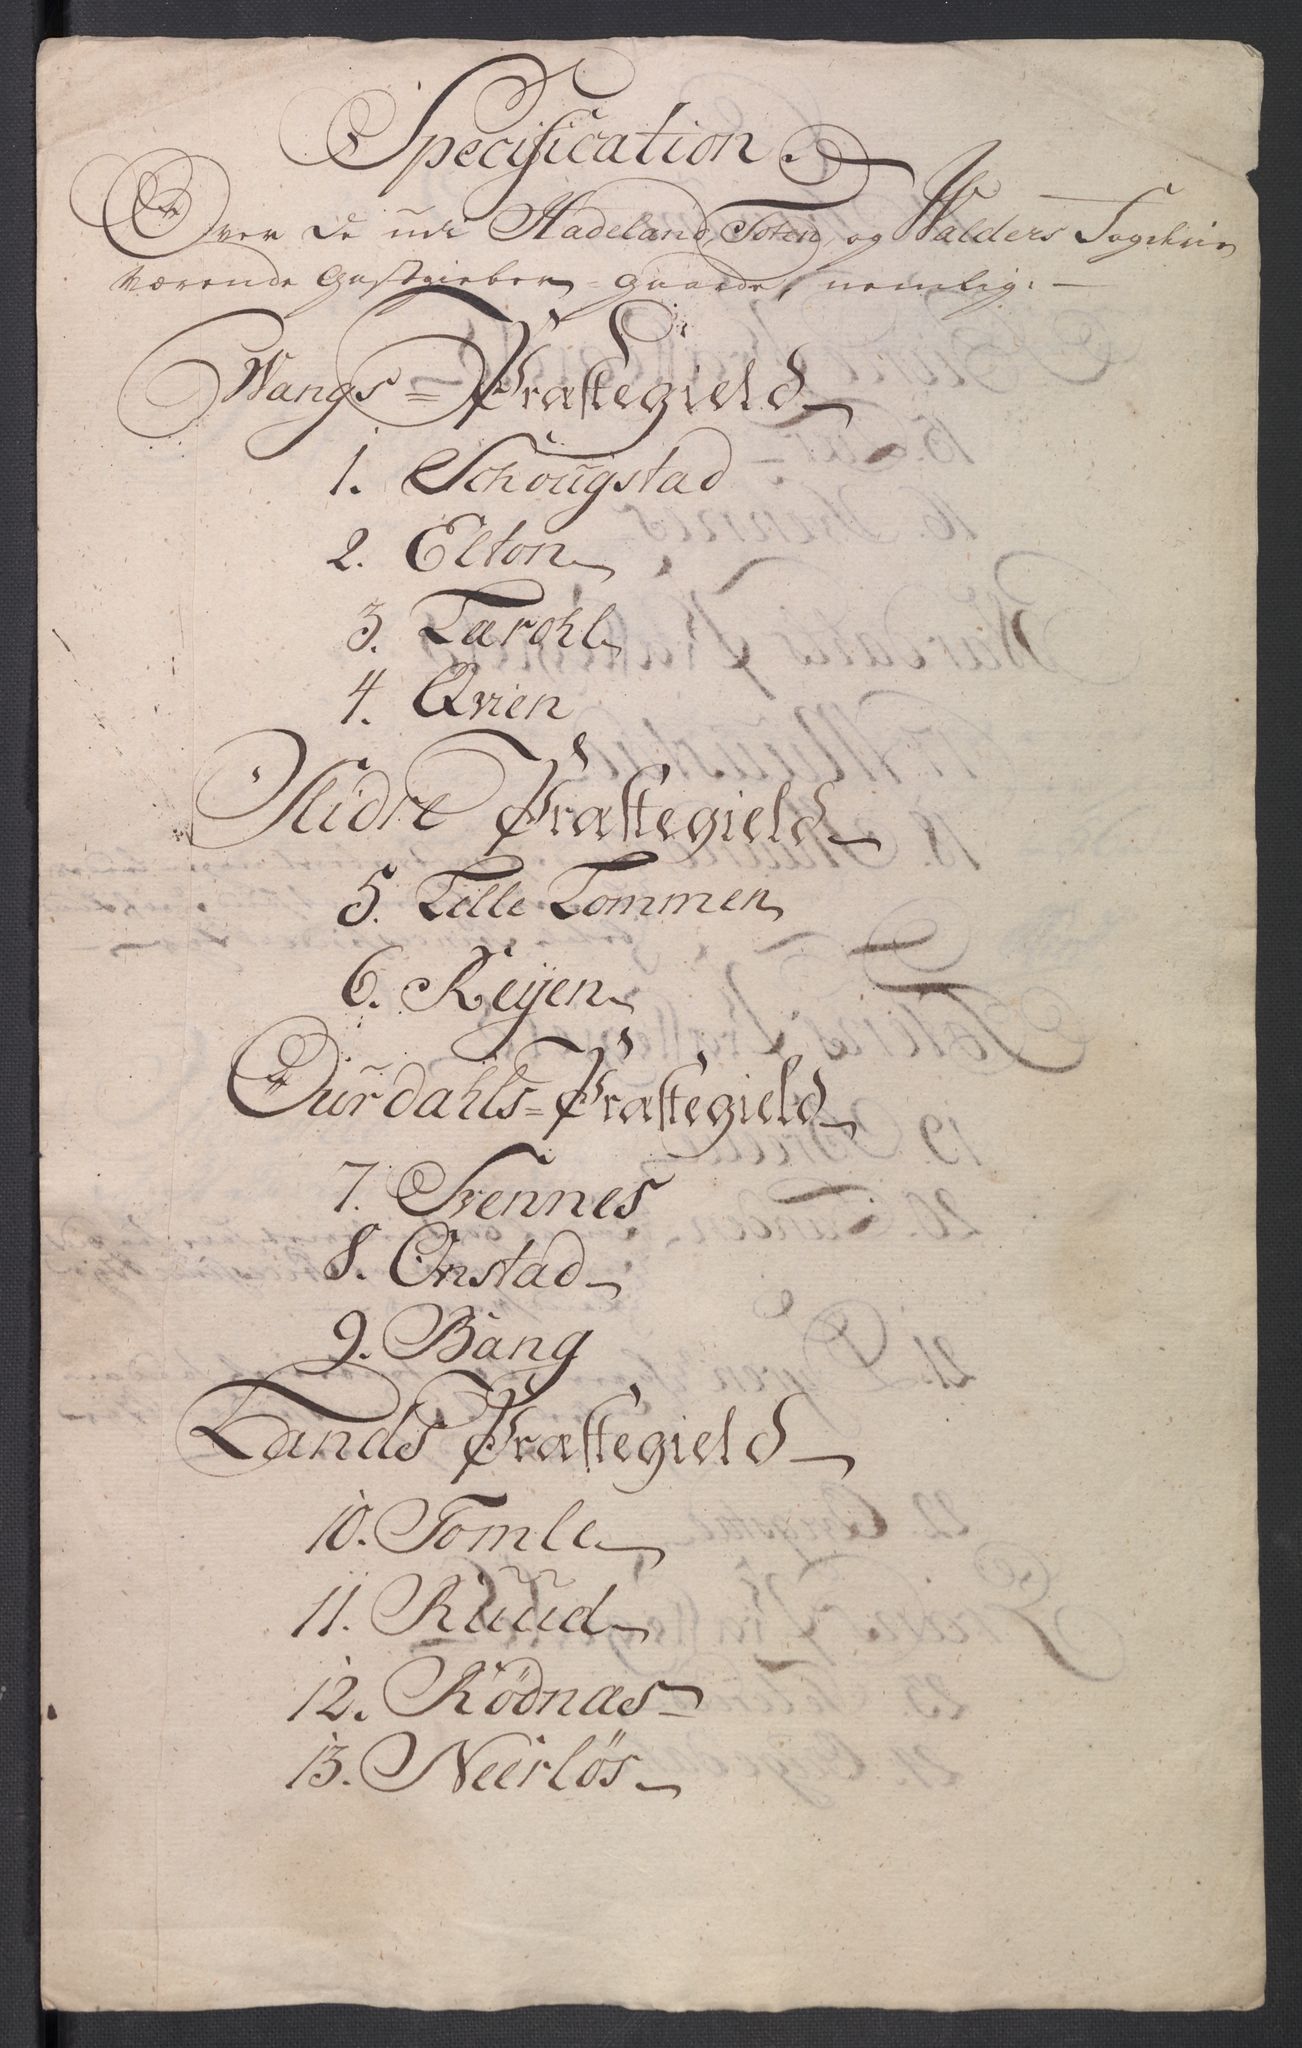 Specification
Over de udi Hadeland, Toten, og Walders Fogderie
værende Gastgieber-Gaarde, nemlig:
Wangs = Præstegield
1. Schougstad
2. Elton
3. Larohl
4. Qvien
Slidre Præstegield
5. Lille Lommen
6. Reyen
Ourdahls = Præstegield
7. Svennes
8. Onstad
9. Bang
Lands Præstegield
10. Tomle
11. Ruud
12. Rödnæs
13. Neerløs